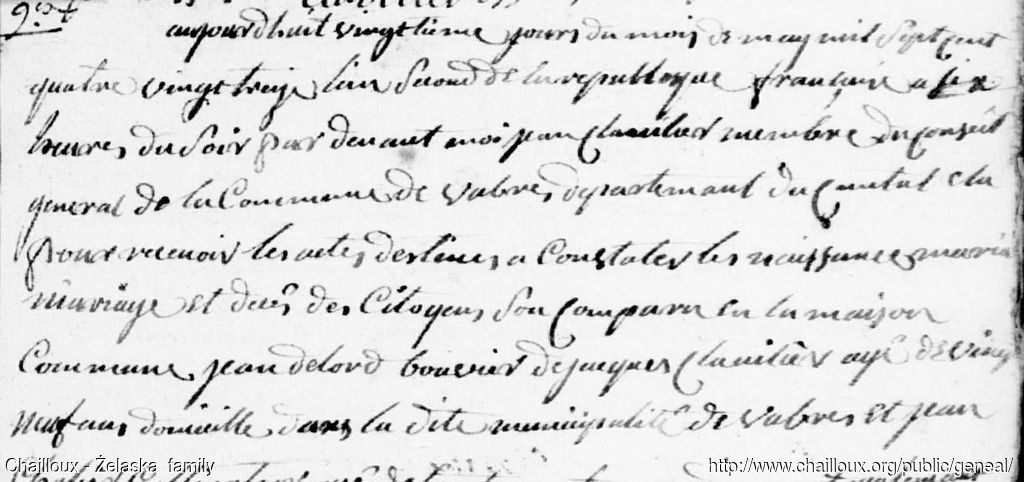 aujourdhuit vingtieme jours du mois de may mil sept cent
quatre vingt treize lan second de la republique française a six
heures du soir par devant moi jean Clavilier membre du conseil
general de la Commune de Valbres departemant du Cantal elu
pour recevoir les actes destines a Constater les naissances
mariage et deces des Citoyens son comparu en la maison
Commune jean delord bouvier de jacques Clavilier agé de vingt
neuf ans domicille dans la dite municipalité de Valbres et jean
Chailloux - Żelaska family
http://www.chailloux.org/public/geneal/